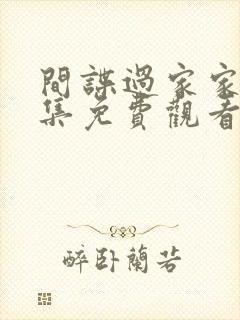 間諜過家家
集免費觀看
醉卧蘭若